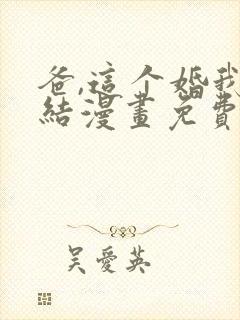 爸,這个婚我
結漫畫免費
吳愛英